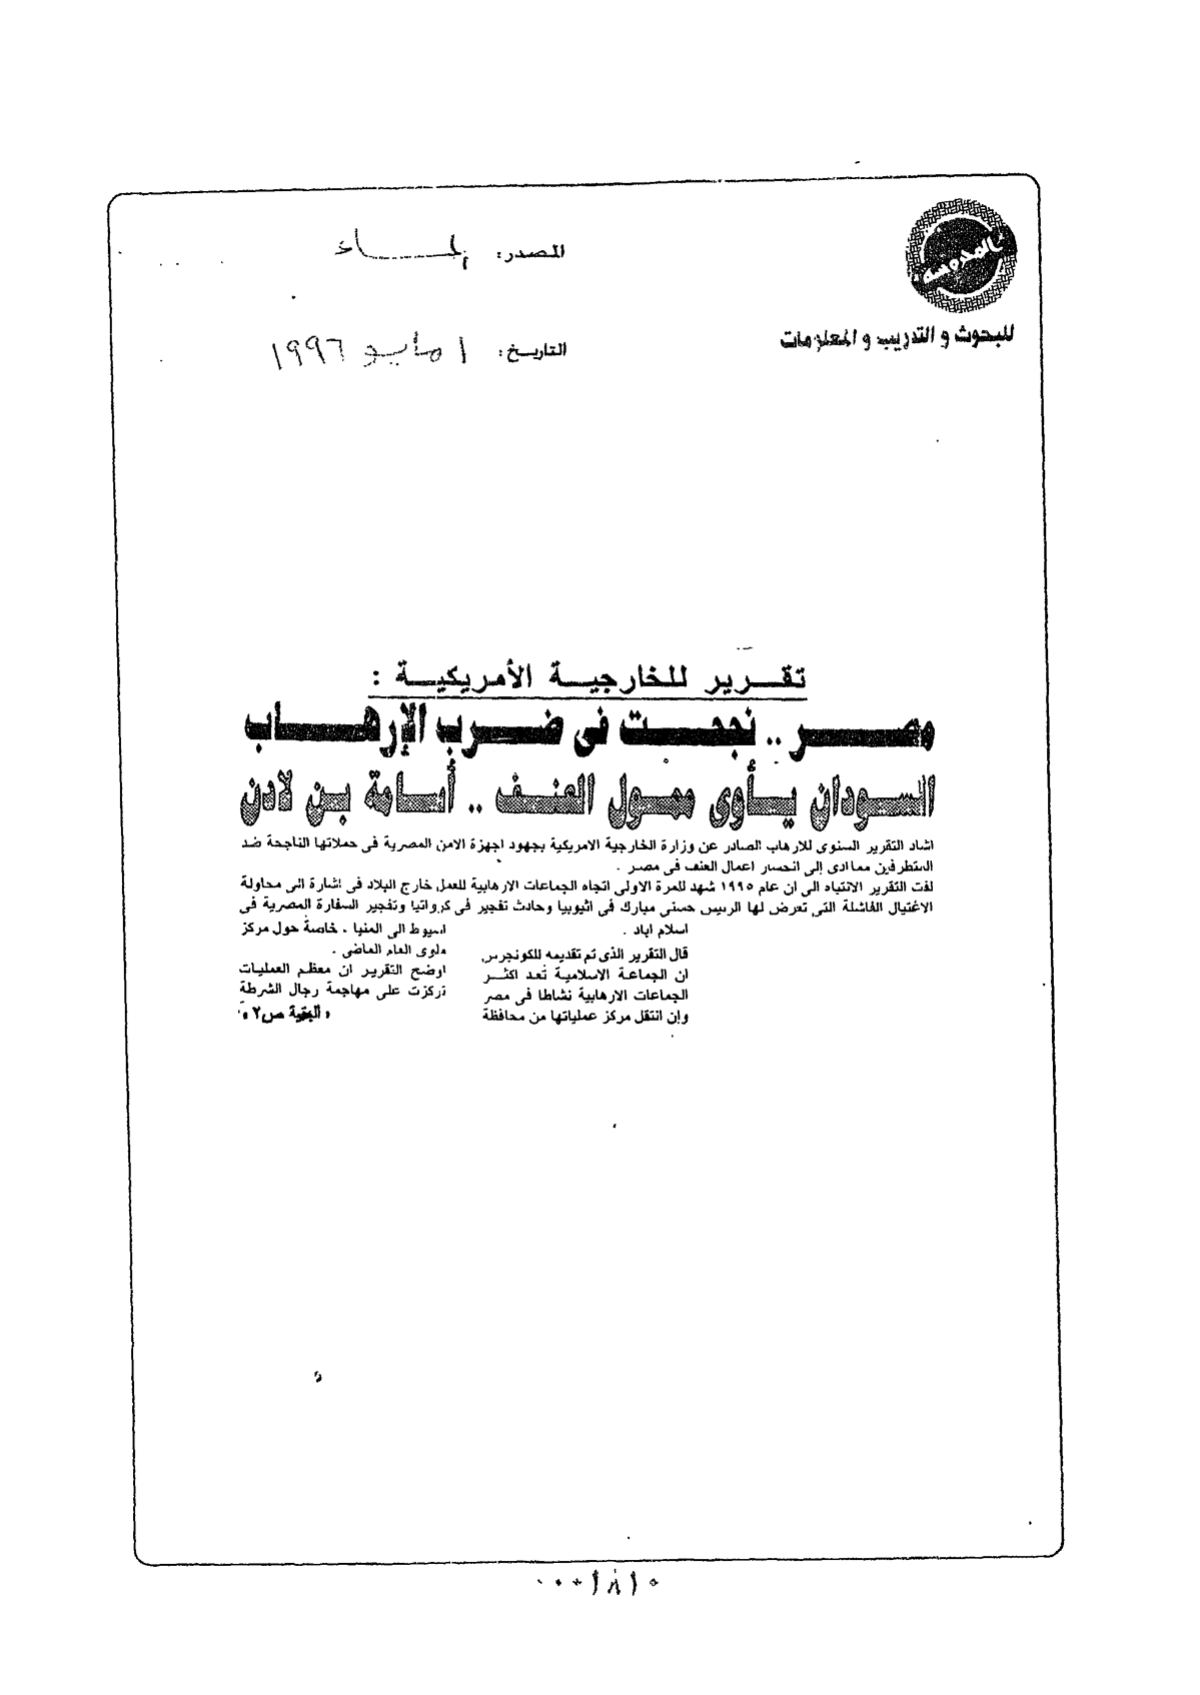 المحروسة
للبحوث و التدريب و المعلومات
المصدر: المساء
التاريخ: ١ مايو ١٩٩٦
تقرير للخارجية الأمريكية :
مصر .. نجحت فى ضرب الإرهاب
السودان يأوى ممول العنف .. أسامة بن لادن
اشاد التقرير السنوى للارهاب الصادر عن وزارة الخارجية الامريكية بجهود اجهزة الامن المصرية فى حملاتها الناجحة ضد
المتطرفين مما ادى إلى انحسار اعمال العنف فى مصر .
لفت التقرير الانتباه الى ان عام ١٩٩٥ شهد للمرة الاولى اتجاه الجماعات الارهابية للعمل خارج البلاد فى اشارة الى محاولة
الاغتيال الفاشلة التى تعرض لها الرئيس حسنى مبارك فى اثيوبيا وحادث تفجير فى كرواتيا وتفجير السفارة المصرية فى
اسلام اباد .
قال التقرير الذى تم تقديمه للكونجرس
ان الجماعة الاسلامية تُعد اكثر
الجماعات الارهابية نشاطا فى مصر
وإن انتقل مركز عملياتها من محافظة
اسيوط الى المنيا ، خاصة حول مركز
ملوى العام الماضى .
اوضح التقرير ان معظم العمليات
تركزت على مهاجمة رجال الشرطة
« البقية ص٢ »